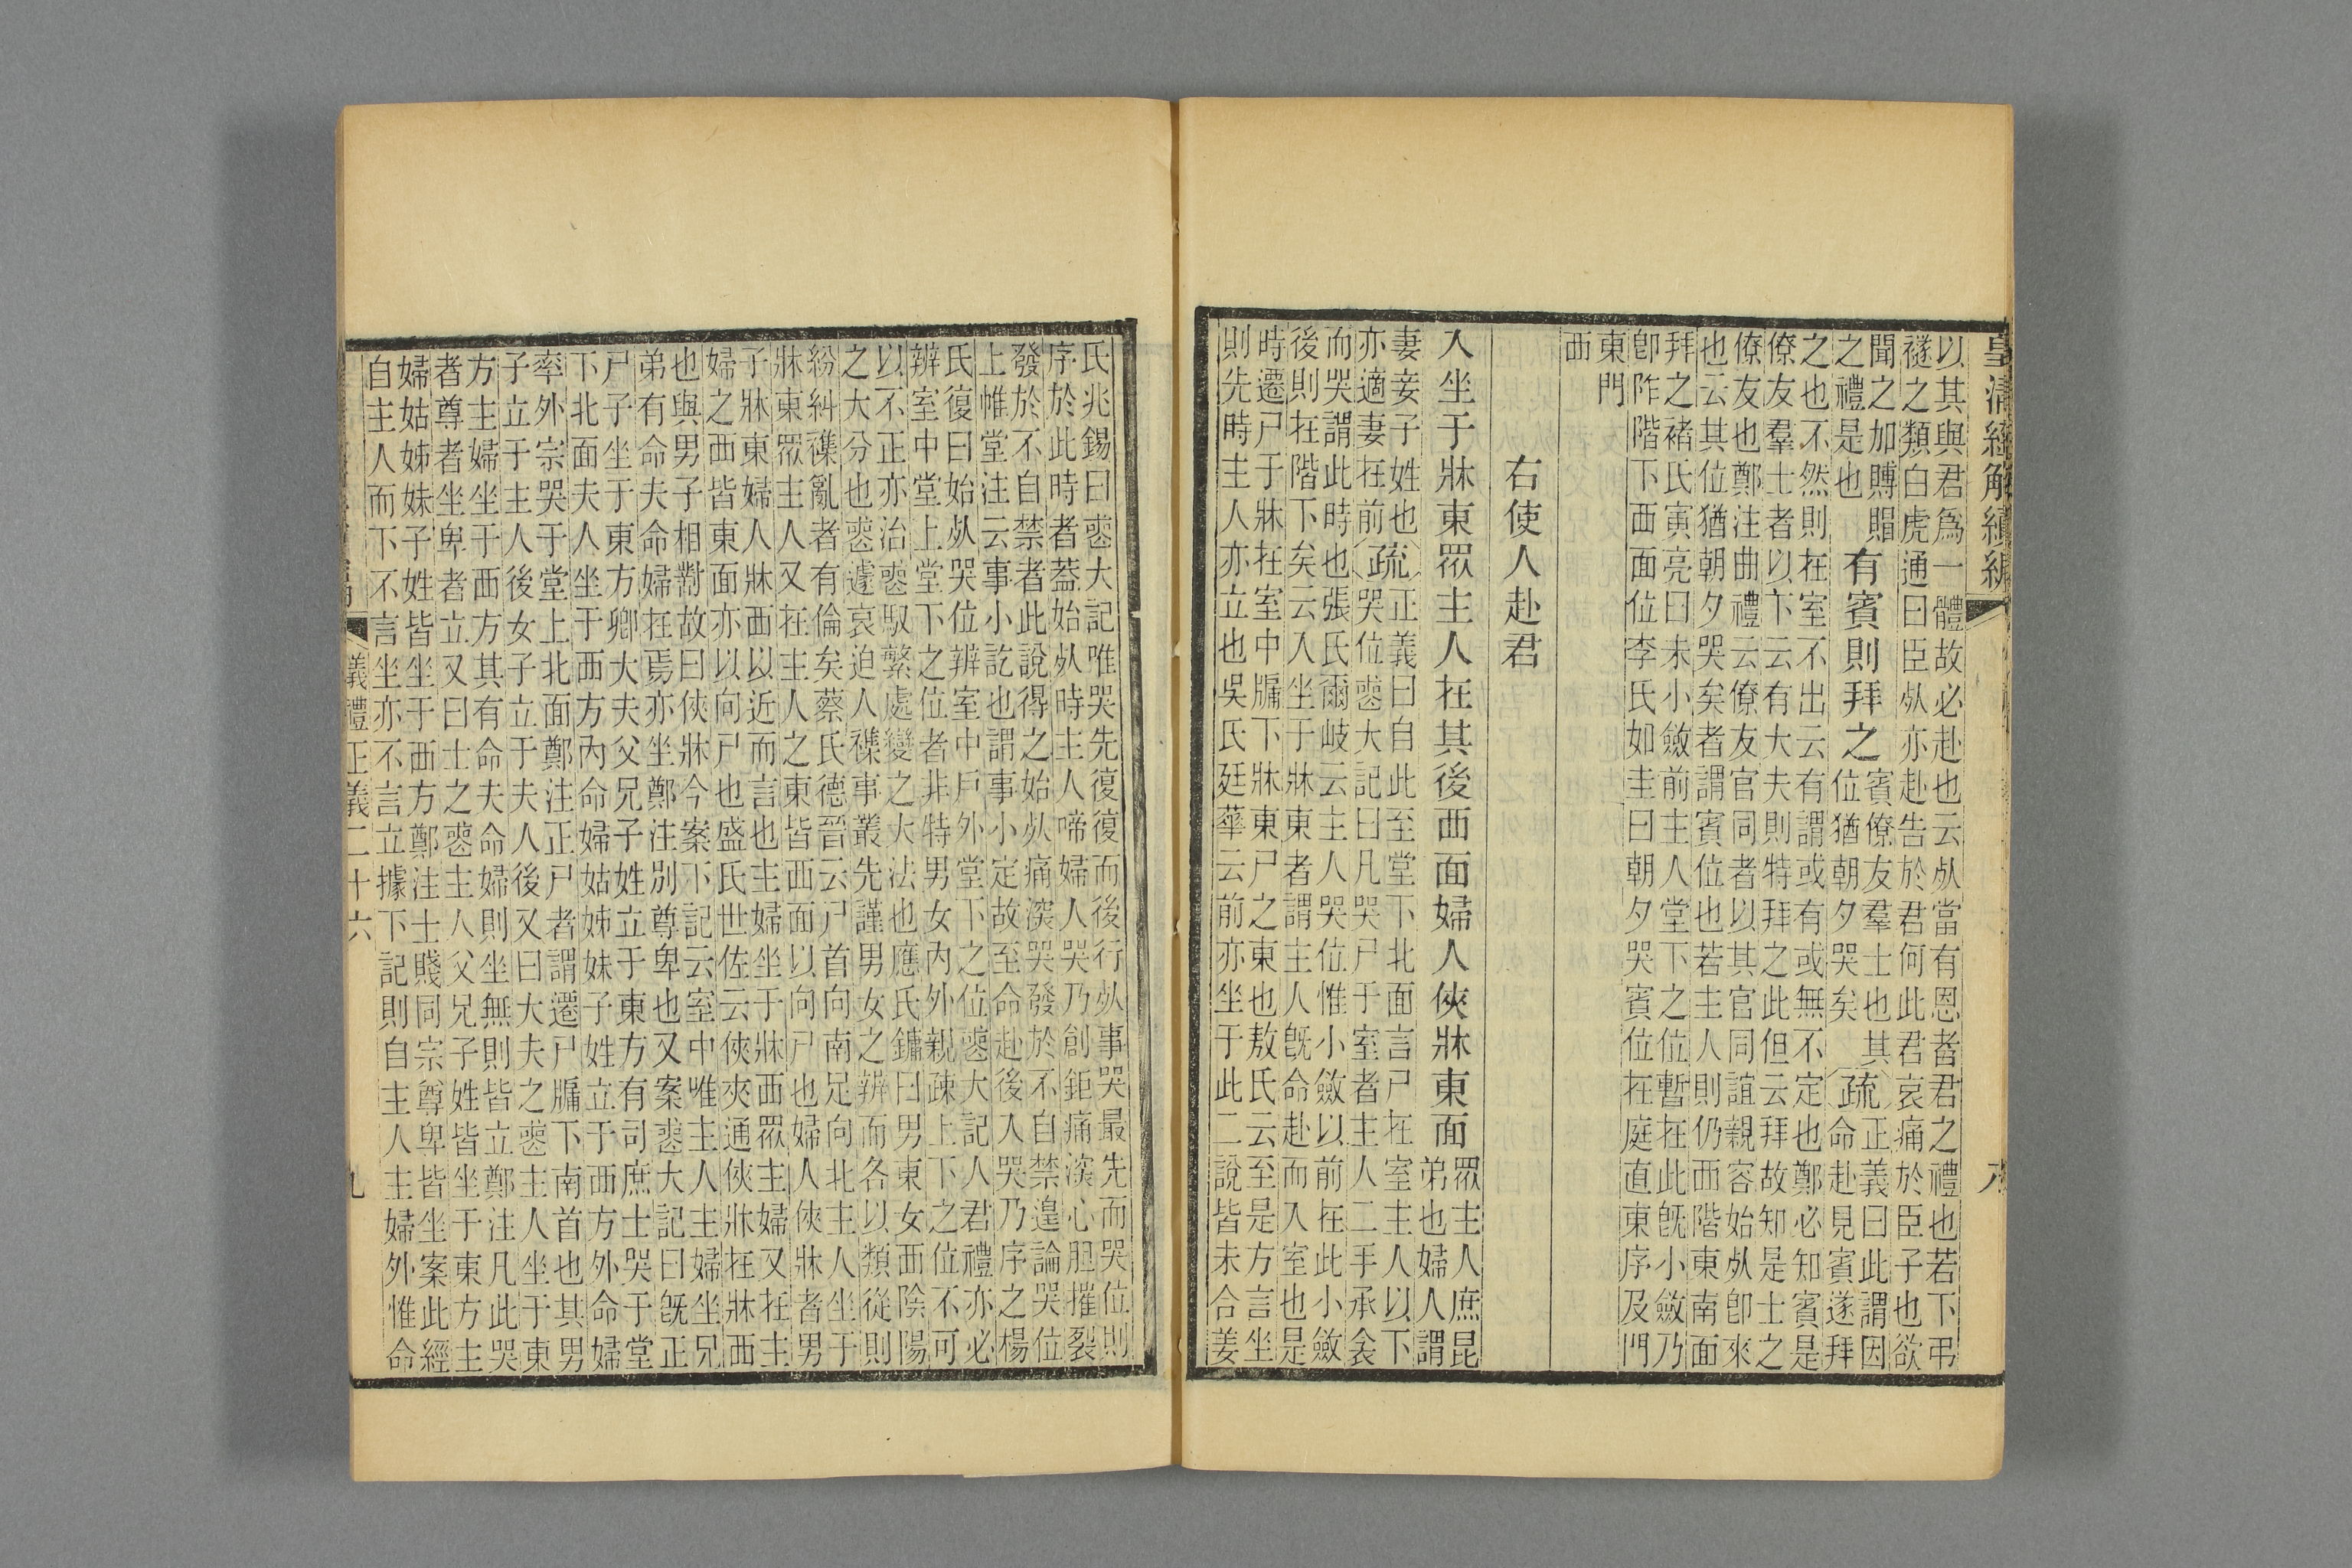 皇清經解續編
以其與君爲一體故必赴也云𣦸當有恩者君之禮也若下弔
襚之類白虎通曰臣𣦸亦赴告於君何此君哀痛於臣子也欲
聞之加賻賵
之禮是也
有賓則拜之
賓僚友羣士也其
位猶朝夕哭矣
疏
正義曰此謂因
命赴見賓遂拜
之也不然則在室不出云有謂或有或無不定也鄭必知賓是
僚友羣士者以下云有大夫則特拜之此但云拜故知是士之
僚友也鄭注曲禮云僚友官同者以其官同誼親容始𣦸卽來
也云其位猶朝夕哭矣者謂賓位也若主人則仍西階東南面
拜之褚氏寅亮曰未小斂前主人堂下之位暫在此旣小斂乃
卽阼階下西面位李氏如圭曰朝夕哭賓位在庭直東序及門
東門
西
右使人赴君
入坐于牀東眾主人在其後西面婦人俠牀東面
眾主人庶昆
弟也婦人謂
妻妾子姓也
亦適妻在前
疏
正義曰自此至堂下北面言尸在室主人以下
哭位喪大記曰凡哭尸于室者主人二手承衾
而哭謂此時也張氏爾岐云主人哭位惟小斂以前在此小斂
後則在階下矣云入坐于牀東者謂主人旣命赴而入室也是
時遷尸于牀在室中牖下牀東尸之東也敖氏云至是方言坐
則先時主人亦立也吳氏廷華云前亦坐于此二說皆未合姜
氏兆錫曰喪大記唯哭先復復而後行𣦸事哭最先而哭位則
序於此時者葢始𣦸時主人啼婦人哭乃創鉅痛深心胆摧裂
發於不自禁者此說得之始𣦸痛深哭發於不自禁遑論哭位
上帷堂注云事小訖也謂事小定故至命赴後入哭乃序之楊
氏復曰始𣦸哭位辨室中戶外堂下之位喪大記人君禮亦必
辨室中堂上堂下之位者非特男女內外親疎上下之位不可
以不正亦治喪馭繁處變之大法也應氏鏞曰男東女西陰陽
之大分也喪遽哀迫人襍事叢先謹男女之辨而各以類從則
紛糾襍亂者有倫矣蔡氏德晉云尸首向南足向北主人坐于
牀東眾主人又在主人之東皆西面以向尸也婦人俠牀者男
子牀東婦人牀西以近而言也主婦坐于牀西眾主婦又在主
婦之西皆東面亦以向尸也盛氏世佐云俠夾通俠牀在牀西
也與男子相對故曰俠牀今案下記云室中唯主人主婦坐兄
弟有命夫命婦在焉亦坐鄭注別尊卑也又案喪大記曰旣正
尸子坐于東方卿大夫父兄子姓立于東方有司庶士哭于堂
下北面夫人坐于西方內命婦姑姊妹子姓立于西方外命婦
率外宗哭于堂上北面鄭注正尸者謂遷尸牖下南首也其男
子立于主人後女子立于夫人後又曰大夫之喪主人坐于東
方主婦坐于西方其有命夫命婦則坐無則皆立鄭注凡此哭
者尊者坐卑者立又曰士之喪主人父兄子姓皆坐于東方主
婦姑姊妹子姓皆坐于西方鄭注士賤同宗尊卑皆坐案此經
自主人而下不言坐亦不言立據下記則自主人主婦外惟命
儀禮正義二十六
九